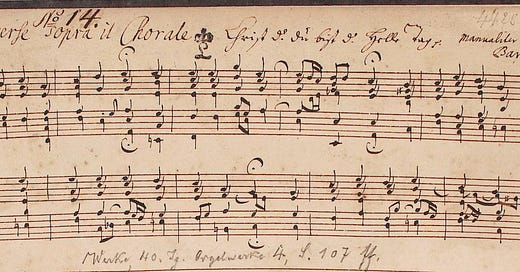 No 14. 4420
erse Sopra il Chorale Christ d. du bist d. Helle Tag. manualiter
Bar
Werke, 40. Jg. Orgelwerke 4, S. 107 ff.